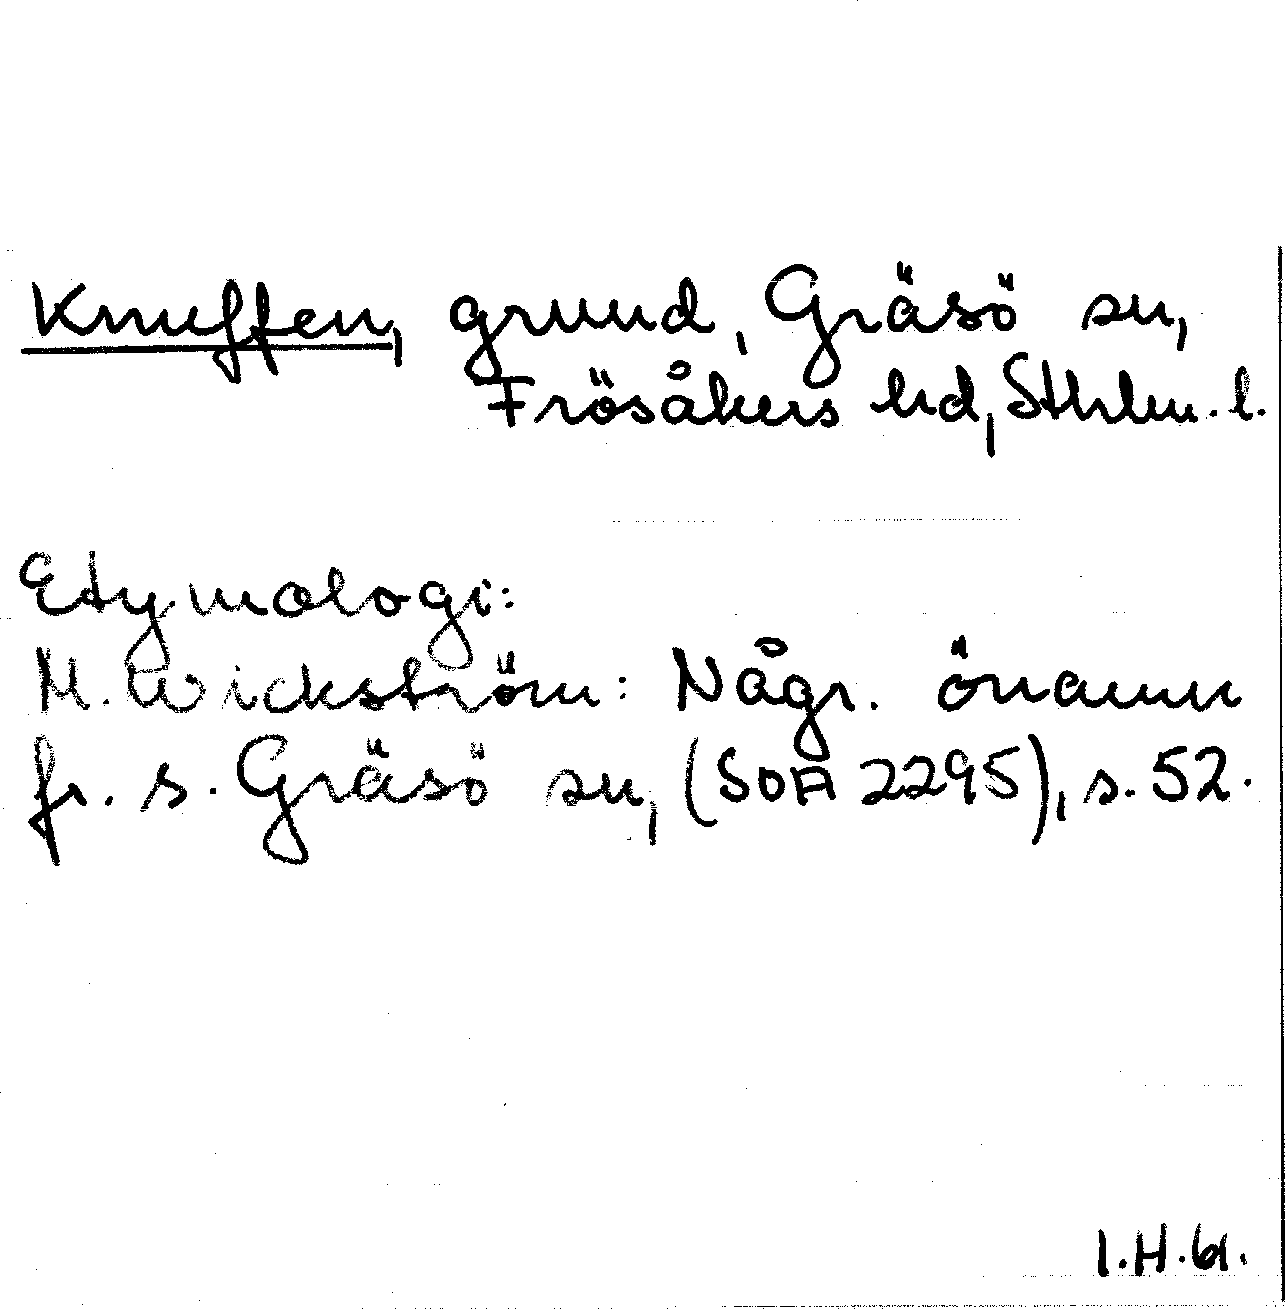 Knuffen, grund, Gräsö sn,
Frösåkers hd, Sthlm. l.
Etymologi:
M. Wickström: Någr. önamn
fr. s. Gräsö sn, (SOA 2295), s. 52.
I.H.61.